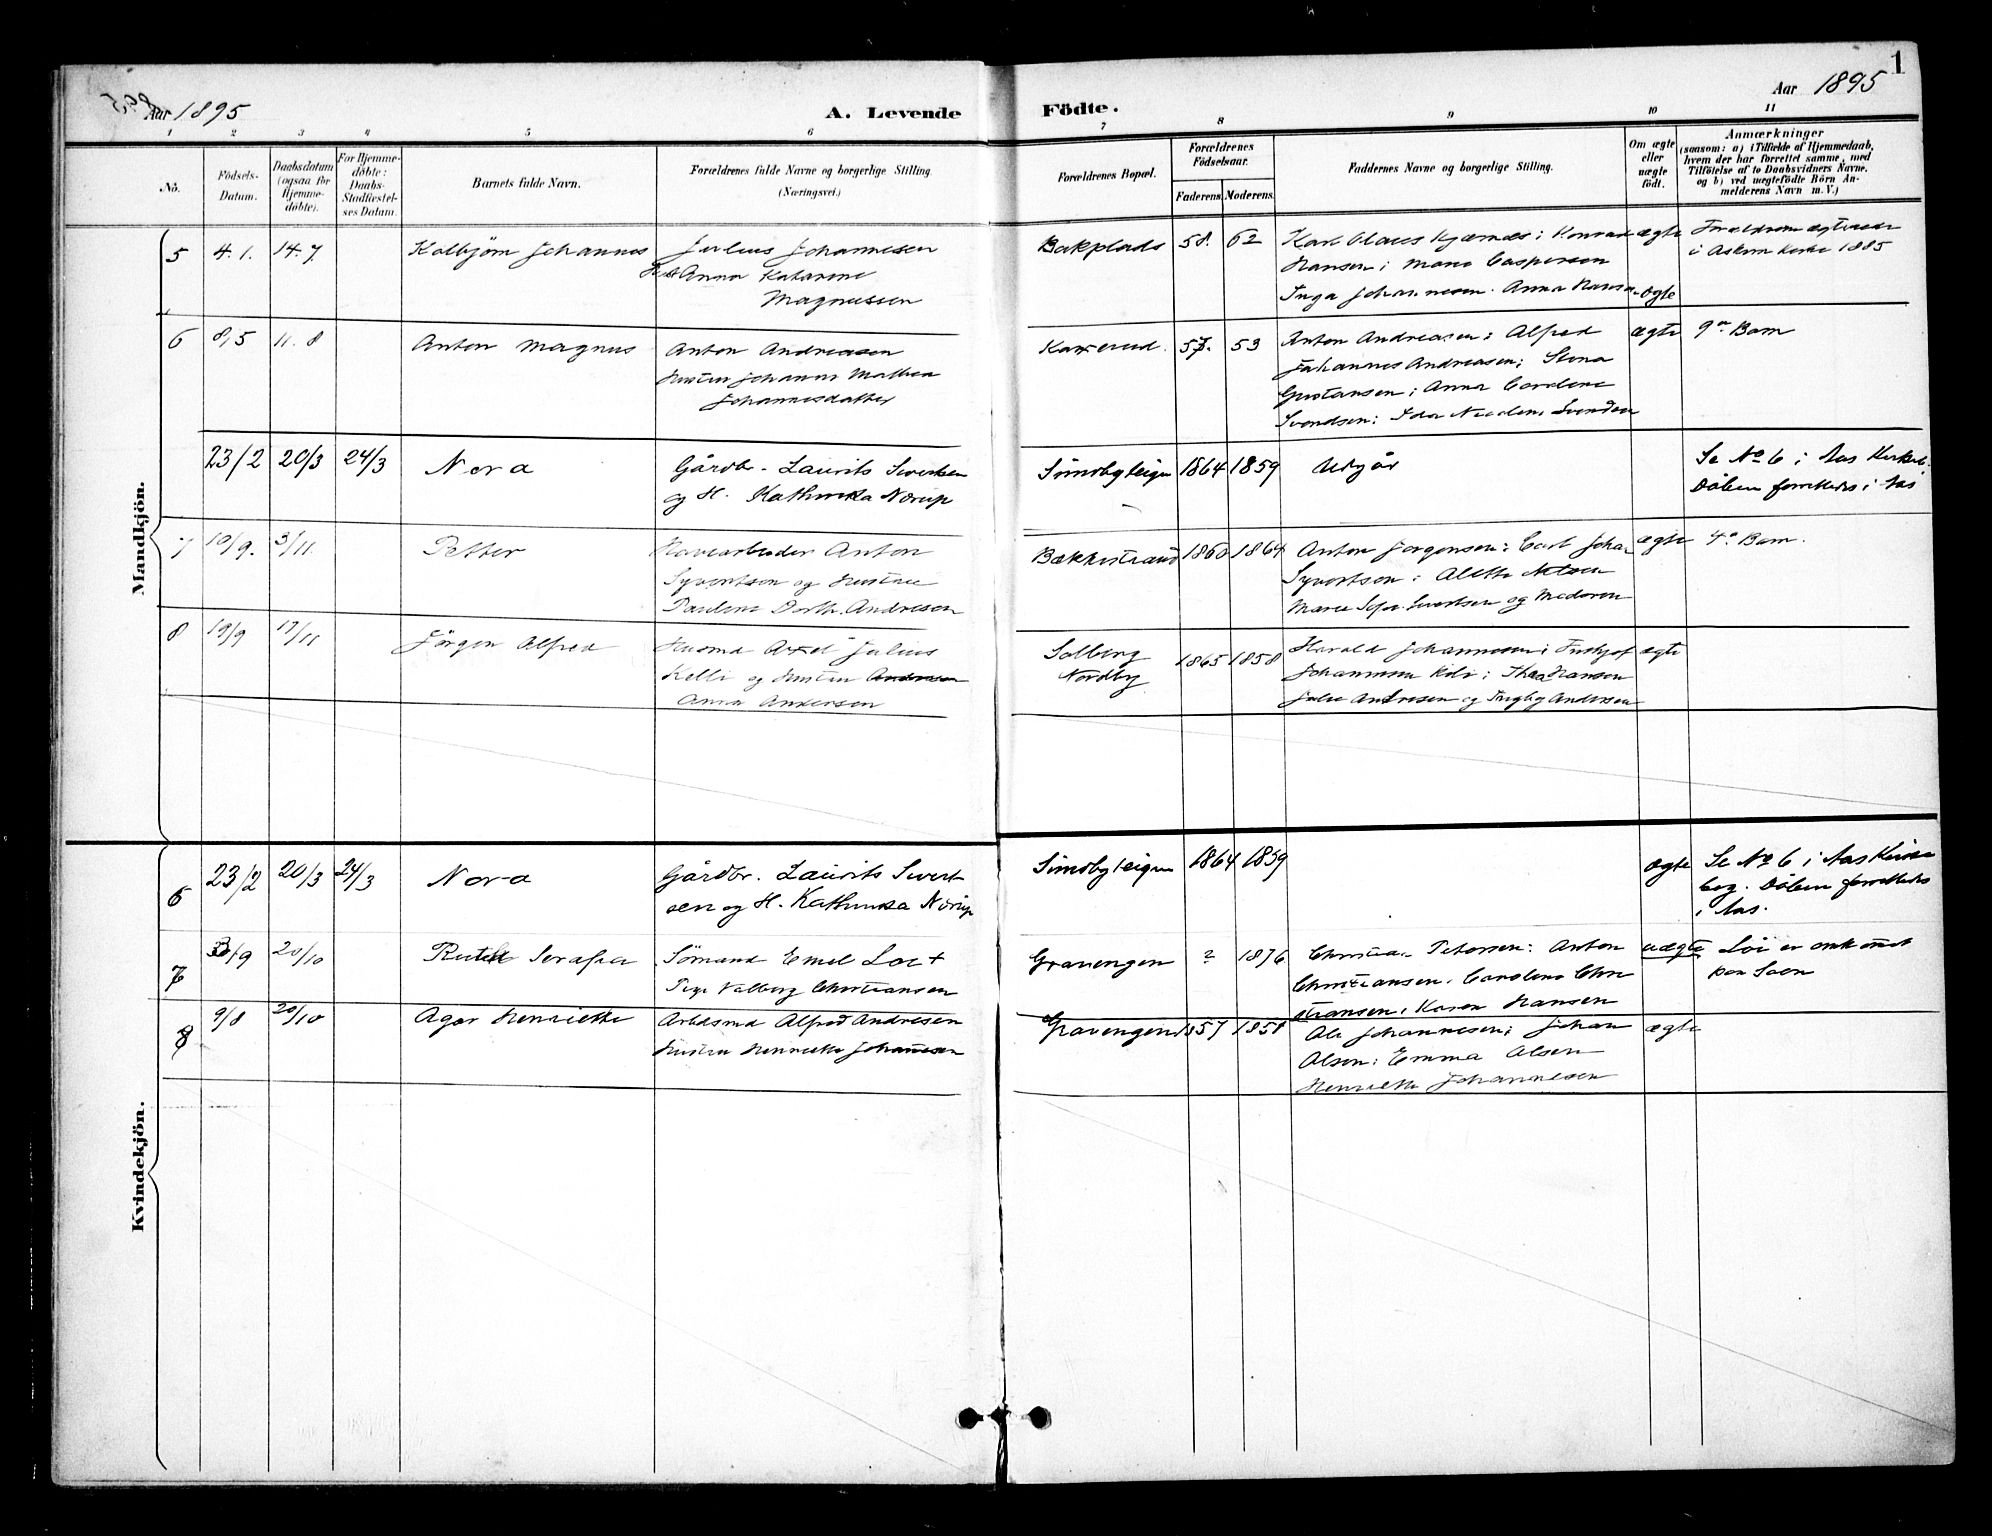 1
Aar 1895
A. Levende
Födte.
Aar 1895
1 2 3 4 5 6 7 8 9 10 11
No.
Födsels-
Datum.
Daabsdatum
(ogsaa for
Hjemme-
döbte).
For Hjemme-
döbte:
Daabs-
Stadfæstel-
ses Datum.
Barnets fulde Navn.
Forældrenes fulde Navne og borgerlige Stilling.
(Næringsvei.)
Forældrenes Bopæl.
Forældrenes
Födselsaar.
Faderens. Moderens.
Faddernes Navne og borgerlige Stilling.
Om ægte
eller
uægte
födt.
Anmærkninger
(saasom: a) i Tilfælde af Hjemmedaab,
hvem der har forrettet samme, med
Tilföielse af to Daabsvidners Navne,
og b) ved uægtefödte Börn An-
melderens Navn m. V.)
Mandkjön.
5 4.1. 14.7
Kolbjörn Johannes
Julius Johannesen
Anna Katarine
Magnussen
Bakplads 58. 62
Karl Olaus Kjærnes; Konrad
Hansen; Marie Caspersen
Inga Johannesen. Anna Hansen
ægte
ægte
Forældrene ægteviede
i Askim Kirke 1885
6 8,5 11.8
Anton Magnus
Anton Andreasen
Hustru Johanne Mathea
Johannesdatter
Kaxerud. 57. 53
Anton Andreasen; Alfred
Johannes Andreasen; Stina
Gustansen; Anna Caroline
Svendsen; Ida Svendsen
ægte
9de Barn
23/2 20/3 24/3
Nora
Gårdbr. Laurits Sivertsen
og H. Kathinka Nørup
Sundbyleigen 1864 1859
Udgår
Se No 6 i Aas Kirkeb.
Dåben forrettedes i Aas
7 10/9. 3/11.
Petter
Havearbeider Anton
Syvertsen og Hustru
Pauline Dorth. Andresen
Bækkestrand 1860 1864
Anton Jørgensen; Carl Johan
Syvertsen; Alette Nelsen
Marie Sofie Sivertsen og Moderen
ægte
4de Barn.
8 19/9 17/11
Jörgen Alfred
Husmd Axel Julius
Kelli og Hustru Andresen
Anna Andersen
Solberg
Nordby
1865 1858
Harald Johannesen; Fridtjof
Johannesen Kili; Thea Hansen
Julie Andresen og Andersen
ægte
Kvindekjön.
6 23/2 20/3 24/3
Nora
Gårdbr. Laurits Sivert
sen og H. Kathinka Nørup
Sundbyleigen 1864 1859
ægte
Se No 6 i Aas Kirke
bog. Dåben forrettedes
i Aas.
7 30/9 20/10
Ruth Serafia
Sömand Emil Loe +
Pige Valborg Christiansen
Gravengen ? 1876
Christian Petersen; Anton
Christiansen. Caroline Chri
stiansen; Karen Hansen
uægte
Loe er omkommet
paa Søen
8 9/8 20/10
Agar Henriette
Arbdsmd Alfred Andresen
Hustru Henriette Johannesen
Gravengen 1857 1858
Ole Johannesen; Johan
Olsen; Emma Olsen
Henriette Johannesen
ægte